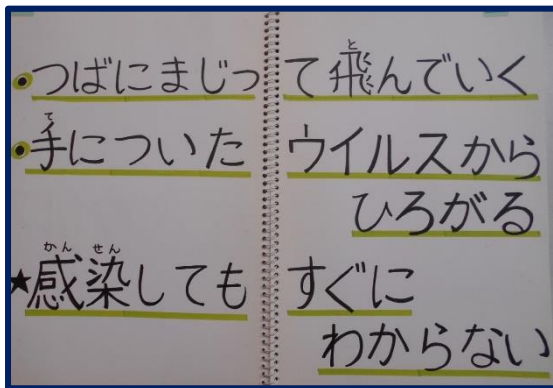 ●つばにまじって飛んでいく
●手についたウイルスから
ひろがる
★感染してもすぐに
わからない